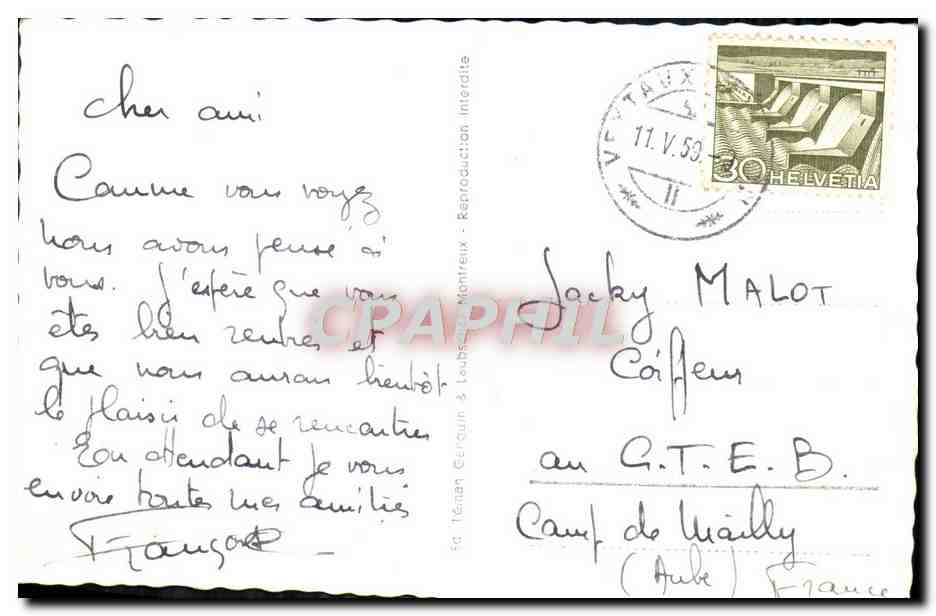 cher ami
Comme vous voyez
nous avons pensé à
vous. J'espère que vous
êtes bien rentrés et
que nous aurons bientôt
le plaisir de se rencontrer
En attendant je vous
envoie toutes mes amitiés
François
Ed. Téman Gerguin & Laubscher, Montreux - Reproduction interdite
VEYTAUX
11.V.59.-
II
30 HELVETIA
Jacky MALOT
Coiffeur
au G.T.E.B.
Camp de Mailly
(Aube) France
CPAPHIL